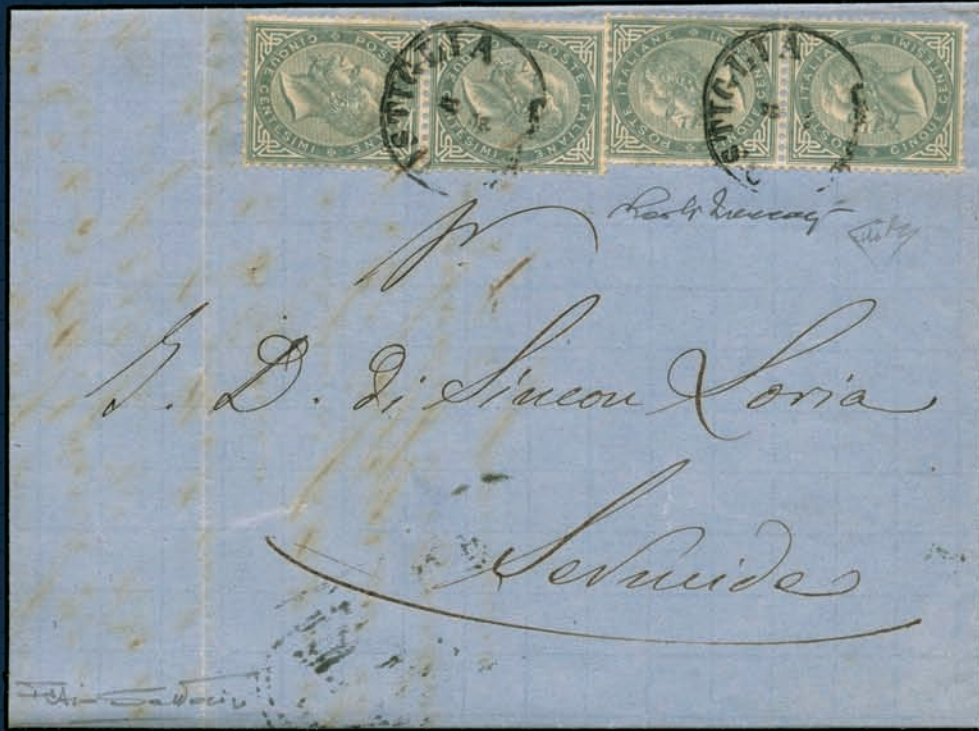 POSTE ITALIANE CINQUE CENTESIMI
POSTE ITALIANE CINQUE CENTESIMI
POSTE ITALIANE CINQUE CENTESIMI
POSTE ITALIANE CINQUE CENTESIMI
OSTIGLIA
OSTIGLIA
D. di Simeon Loria
Sermide